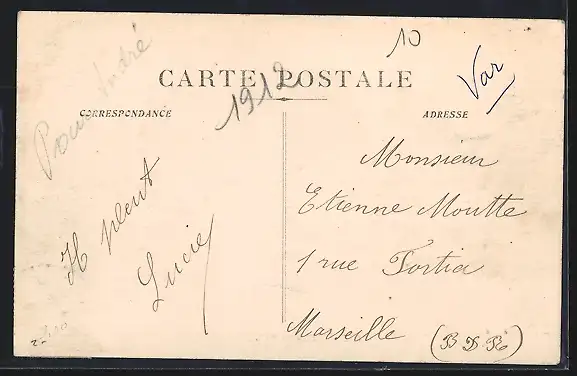 Pour André
10
CARTE POSTALE
1912
Var
CORRESPONDANCE
ADRESSE
Il pleut
Lucie
Monsieur
Etienne Moutte
1 rue Fortia
Marseille (B D R)